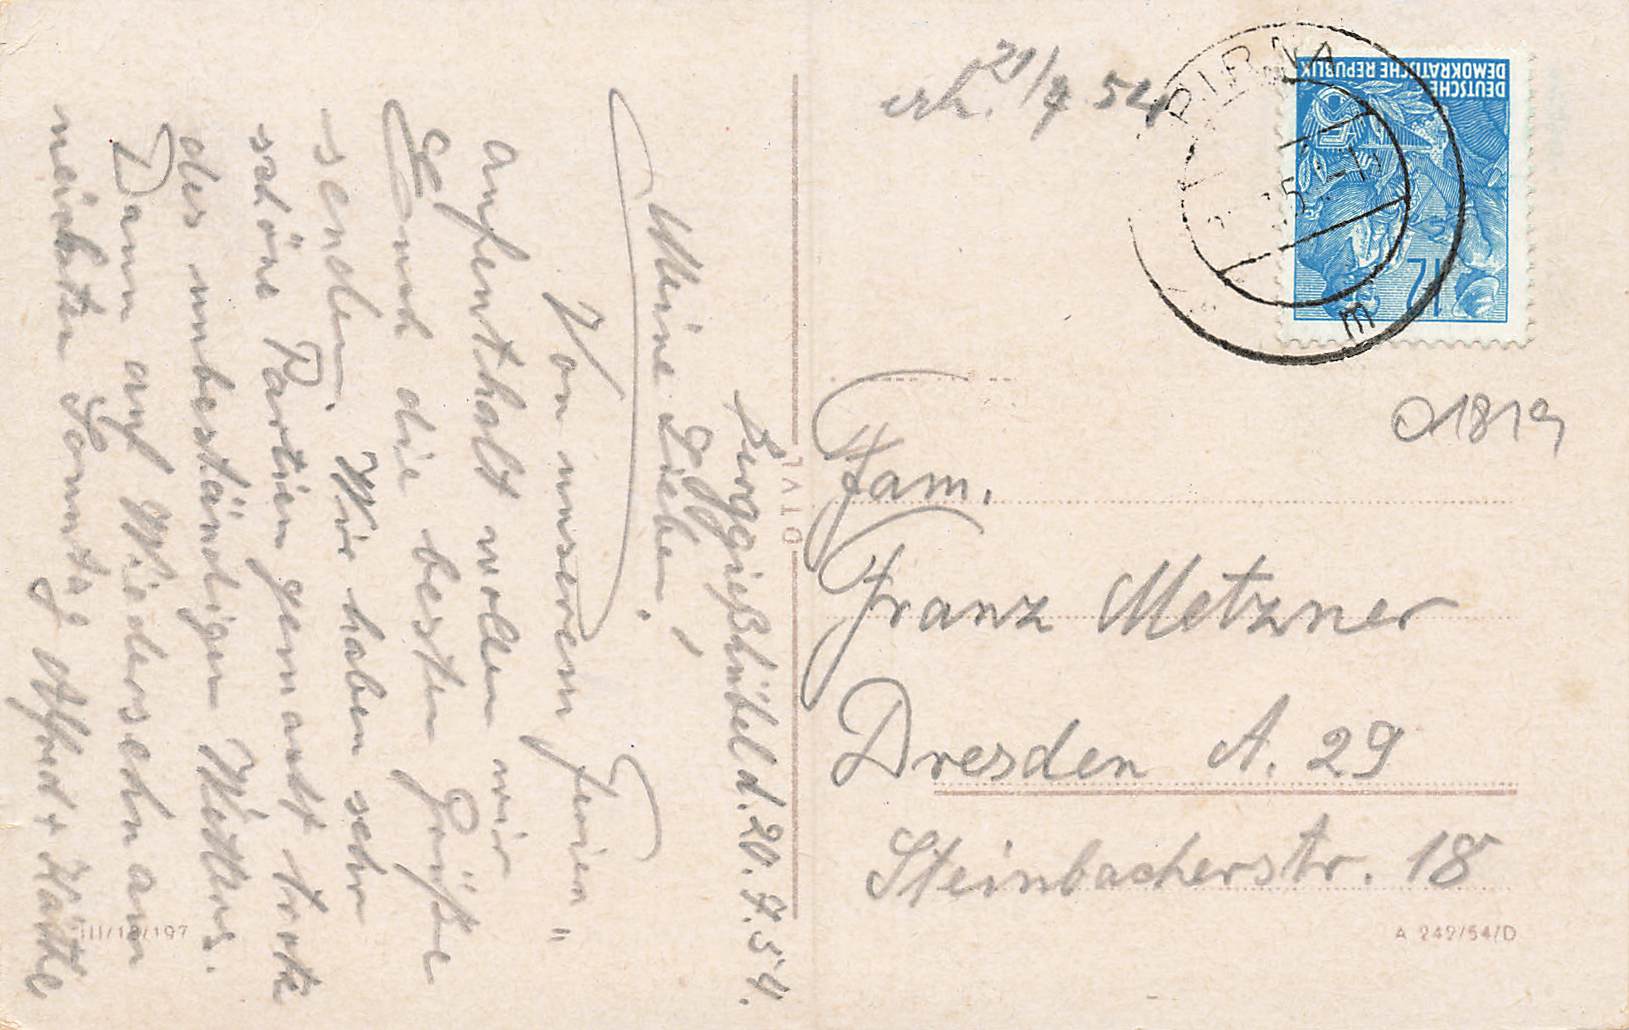 Berggießhübel d. 20. 7. 54.
Meine Lieben,
Von unserem Ferien=
aufenthalt wollen wir
Euch die besten Grüße
senden. Wir haben sehr
schöne Partien gemacht trotz
des unbeständigen Wetters.
Dann auf Wiedersehn am
nächsten Sonntag Alfred + Käthe
III/18/197
VLO
erh. 21/7 54
PIRNA
E
DEUTSCHE
DEMOKRATISCHE REPUBLIK
12
01819
Fam.
Franz Metzner
Dresden A. 29
Steinbacherstr. 18
A 242/54/D